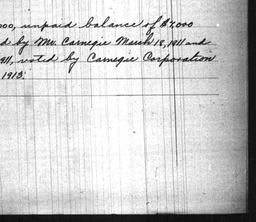 000, unpaid balance of $7,000
d by Mr. Carnegie March 18, 1911 and
911, voted by Carnegie Corporation
1913.